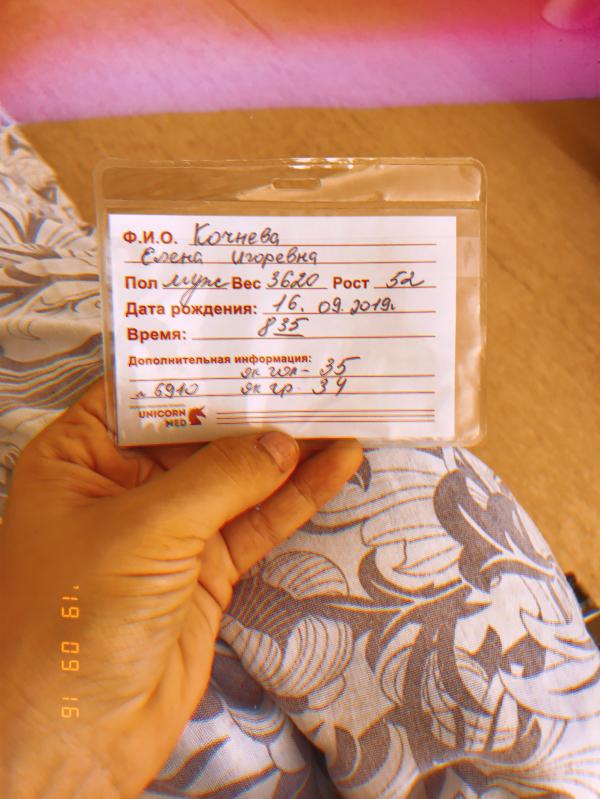 Ф.И.О. Кочнева
Елена Игоревна
Пол муж Вес 3620 Рост 52
Дата рождения: 16. 09. 2019г
Время: 8 35
Дополнительная информация:
ок гол - 35
№ 6910 ок гр. 34
UNICORN
MED
'19 09 16